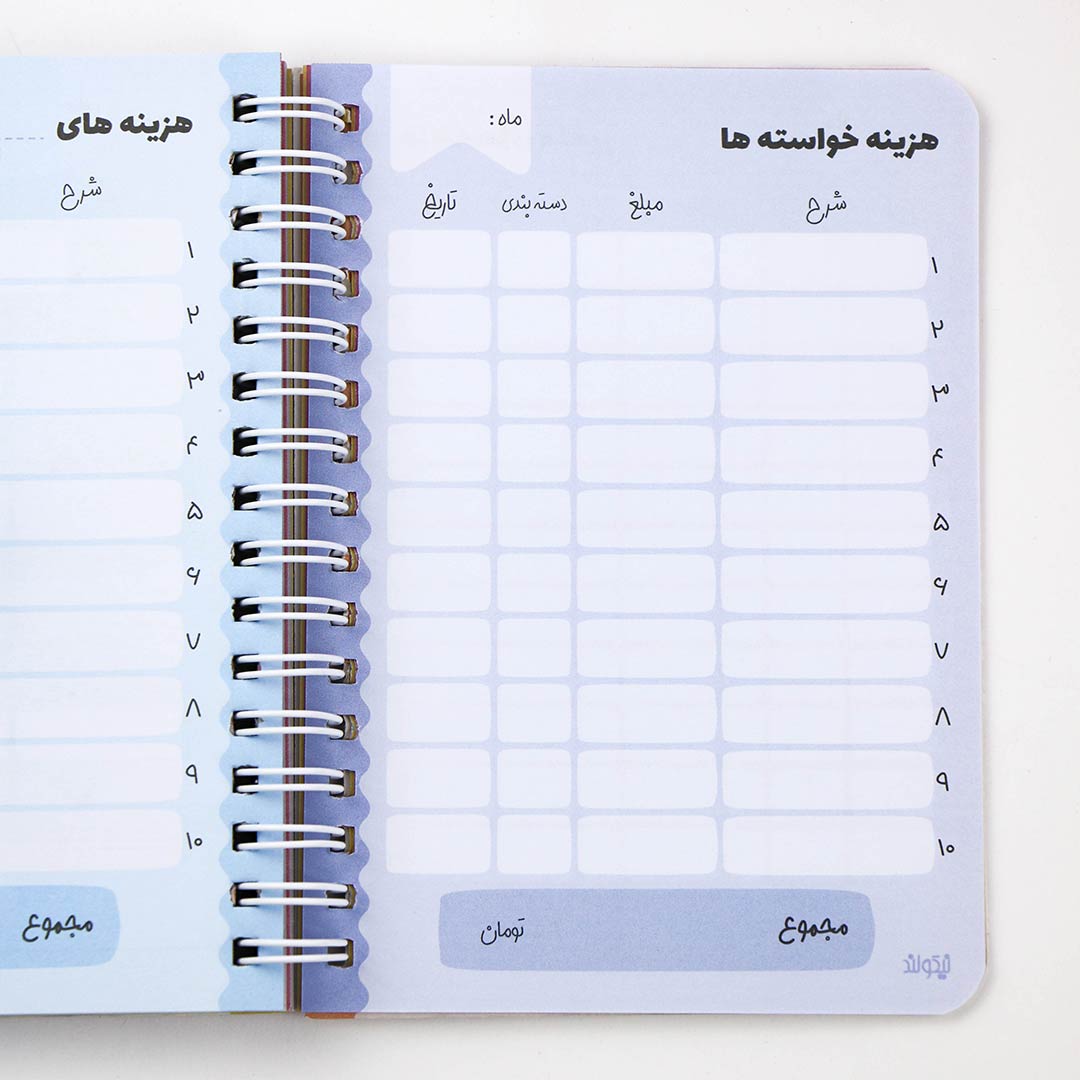 هزینه خواسته ها
ماه:
شرح مبلغ دسته بندی تاریخ
۱
۲
۳
۴
۵
۶
۷
۸
۹
۱۰
مجموع تومان
نیکولند
هزینه های
شرح
۱
۲
۳
۴
۵
۶
۷
۸
۹
۱۰
مجموع